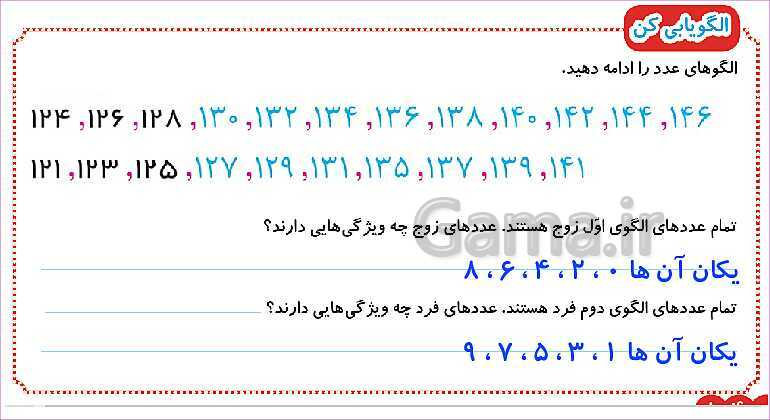 الگویابی کن
الگوهای عدد را ادامه دهید.
۱۲۴ , ۱۲۶ , ۱۲۸ , ۱۳۰ , ۱۳۲ , ۱۳۴ , ۱۳۶ , ۱۳۸ , ۱۴۰ , ۱۴۲ , ۱۴۴ , ۱۴۶
۱۲۱ , ۱۲۳ , ۱۲۵ , ۱۲۷ , ۱۲۹ , ۱۳۱ , ۱۳۵ , ۱۳۷ , ۱۳۹ , ۱۴۱
تمام عددهای الگوی اوّل زوج هستند. عددهای زوج چه ویژگی‌هایی دارند؟
Gama.ir
یکان آن ها ۰ ، ۲ ، ۴ ، ۶ ، ۸
تمام عددهای الگوی دوم فرد هستند. عددهای فرد چه ویژگی‌هایی دارند؟
یکان آن ها ۱ ، ۳ ، ۵ ، ۷ ، ۹